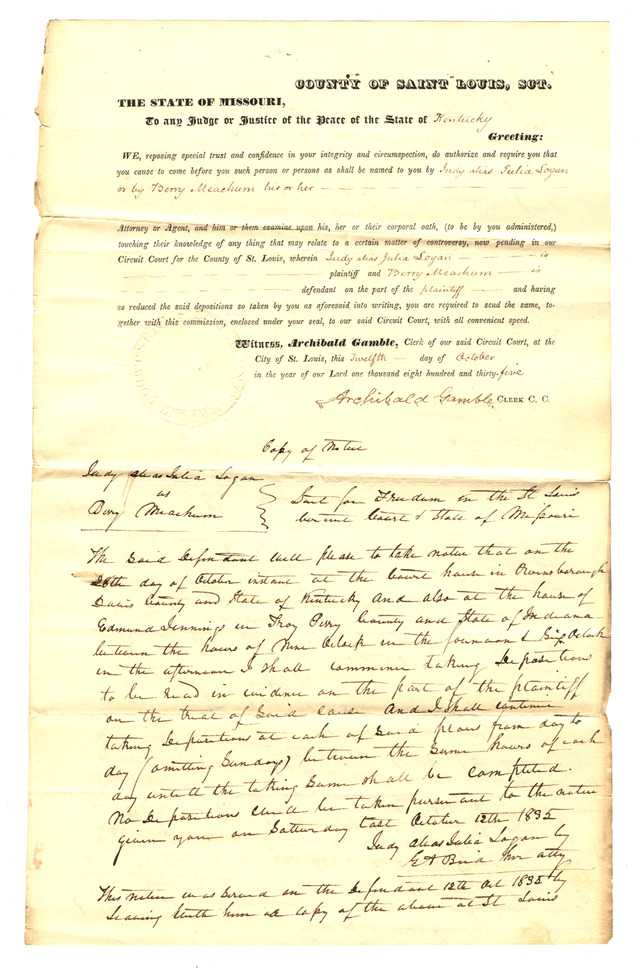 COUNTY OF SAINT LOUIS, SCT.
THE STATE OF MISSOURI,
To any Judge or Justice of the Peace of the State of Kentucky
Greeting:
WE, reposing special trust and confidence in your integrity and circumspection, do authorize and require you that
you cause to come before you such person or persons as shall be named to you by Judy alias Julia Logan
or by Berry Meachum his or her
Attorney or Agent, and him or them examine upon his, her or their corporal oath, (to be by you administered,)
touching their knowledge of any thing that may relate to a certain matter of controversy, now pending in our
Circuit Court for the County of St. Louis, wherein Judy alias Julia Logan — is
plaintiff and Berry Meachum — is
defendant on the part of the plaintiff — and having
so reduced the said depositions so taken by you as aforesaid into writing, you are required to send the same, to-
gether with this commission, enclosed under your seal, to our said Circuit Court, with all convenient speed.
Witness, Archibald Gamble, Clerk of our said Circuit Court, at the
City of St. Louis, this Twelfth — day of October
in the year of our Lord one thousand eight hundred and thirty-five
Archibald Gamble CLERK C. C.
Copy of Notice
Judy alias Julia Logan
vs
Berry Meachum
Suit for Freedom in the St Louis
Circuit Court & State of Missouri
The Said Defendant will please to take notice that on the
28th day of October instant at the Court house in Owinsborough
Davis County and State of Kentucky And also at the house of
Edmund Jennings in Troy Perry County and State of Indiana
between the hours of Nine Oclock in the forenoon & Six Oclock
in the afternoon I shall commence taking Depositions
to be read in evidence on the part of the plaintiff
on the trial of Said Cause And I shall continue
taking Depositions at each of Said places from day to
day (omitting Sundays) between the Same hours of each
day untill the taking Same shall be completed.
No Depositions will be taken pursuant to the notice
given you on Satterday last October 12th 1835
Judy alias Julia Logan by
Bird her atty
This notice was Served on the Defendant 12th Oct 1835 by
leaving with him a copy of the above at St Louis